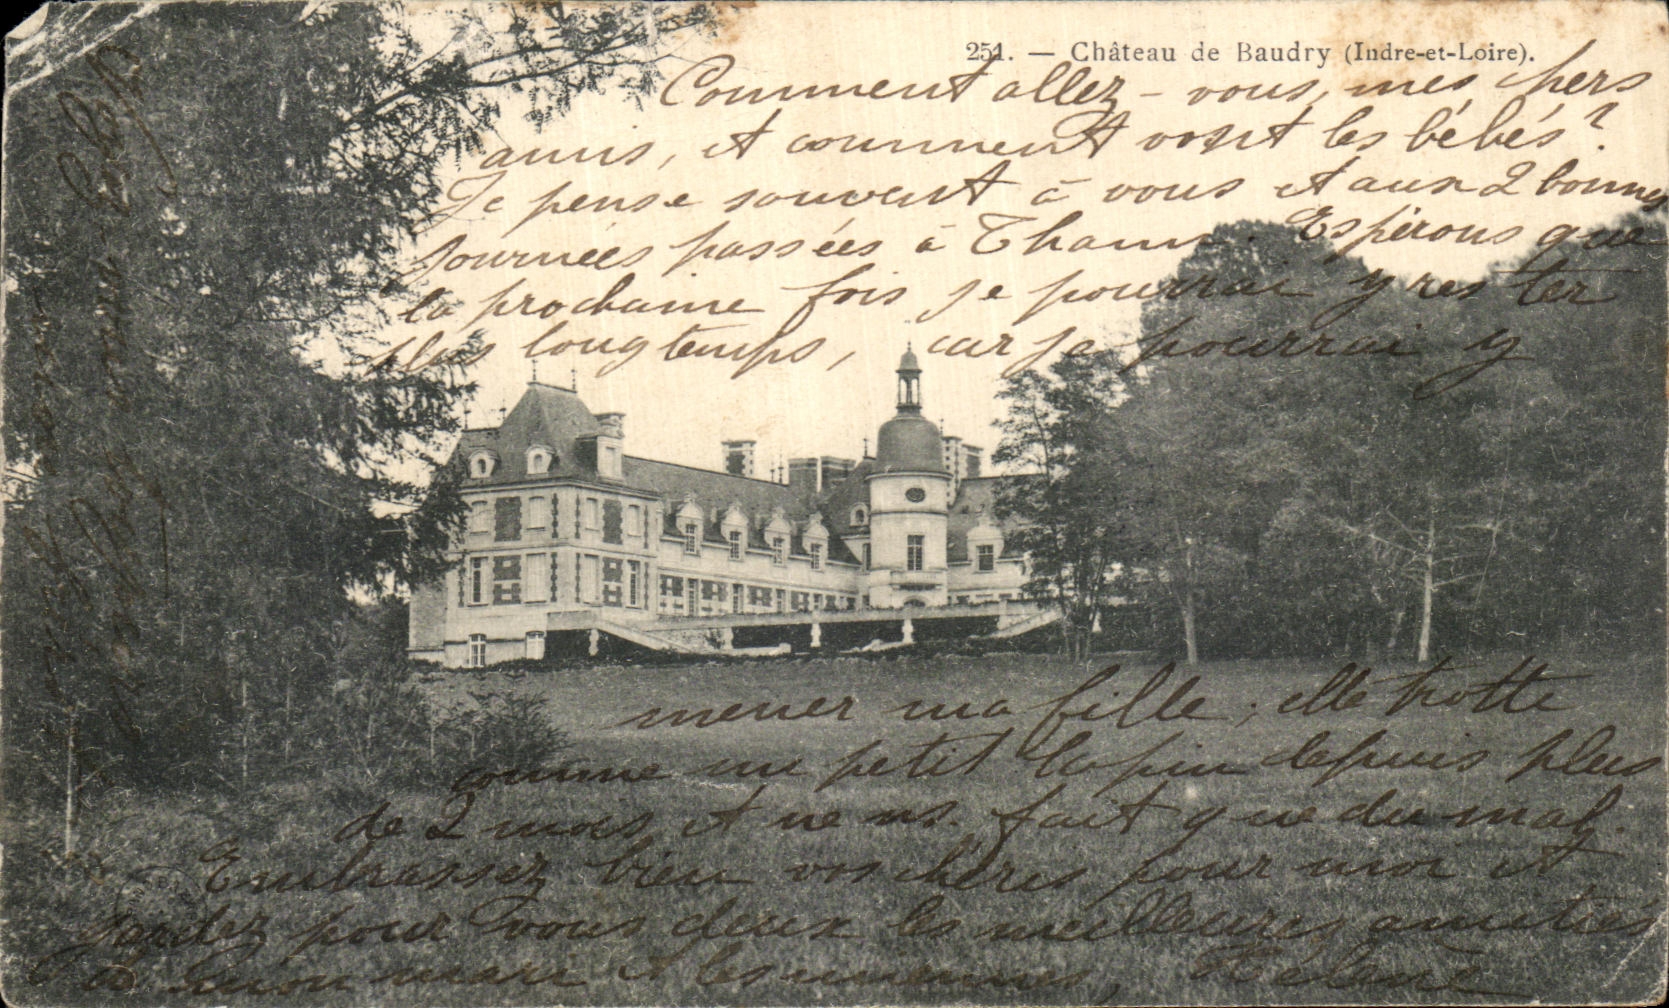 251. — Château de Baudry (Indre-et-Loire).
Comment allez-vous, mes chers
amis, et comment vont les bébés?
Je pense souvent à vous et aux 2 bonnes
journées passées à Thann. Espérons que
la prochaine fois je pourrai y rester
plus longtemps, car je pourrai y
mener ma fille; elle trotte
comme un petit lapin depuis plus
de 2 mois, et ne ns. fait que du mal.
Embrassez bien vos chéris pour moi et
gardez pour vous deux les meilleures amitiés
de mon mari et les miennes, Hélène